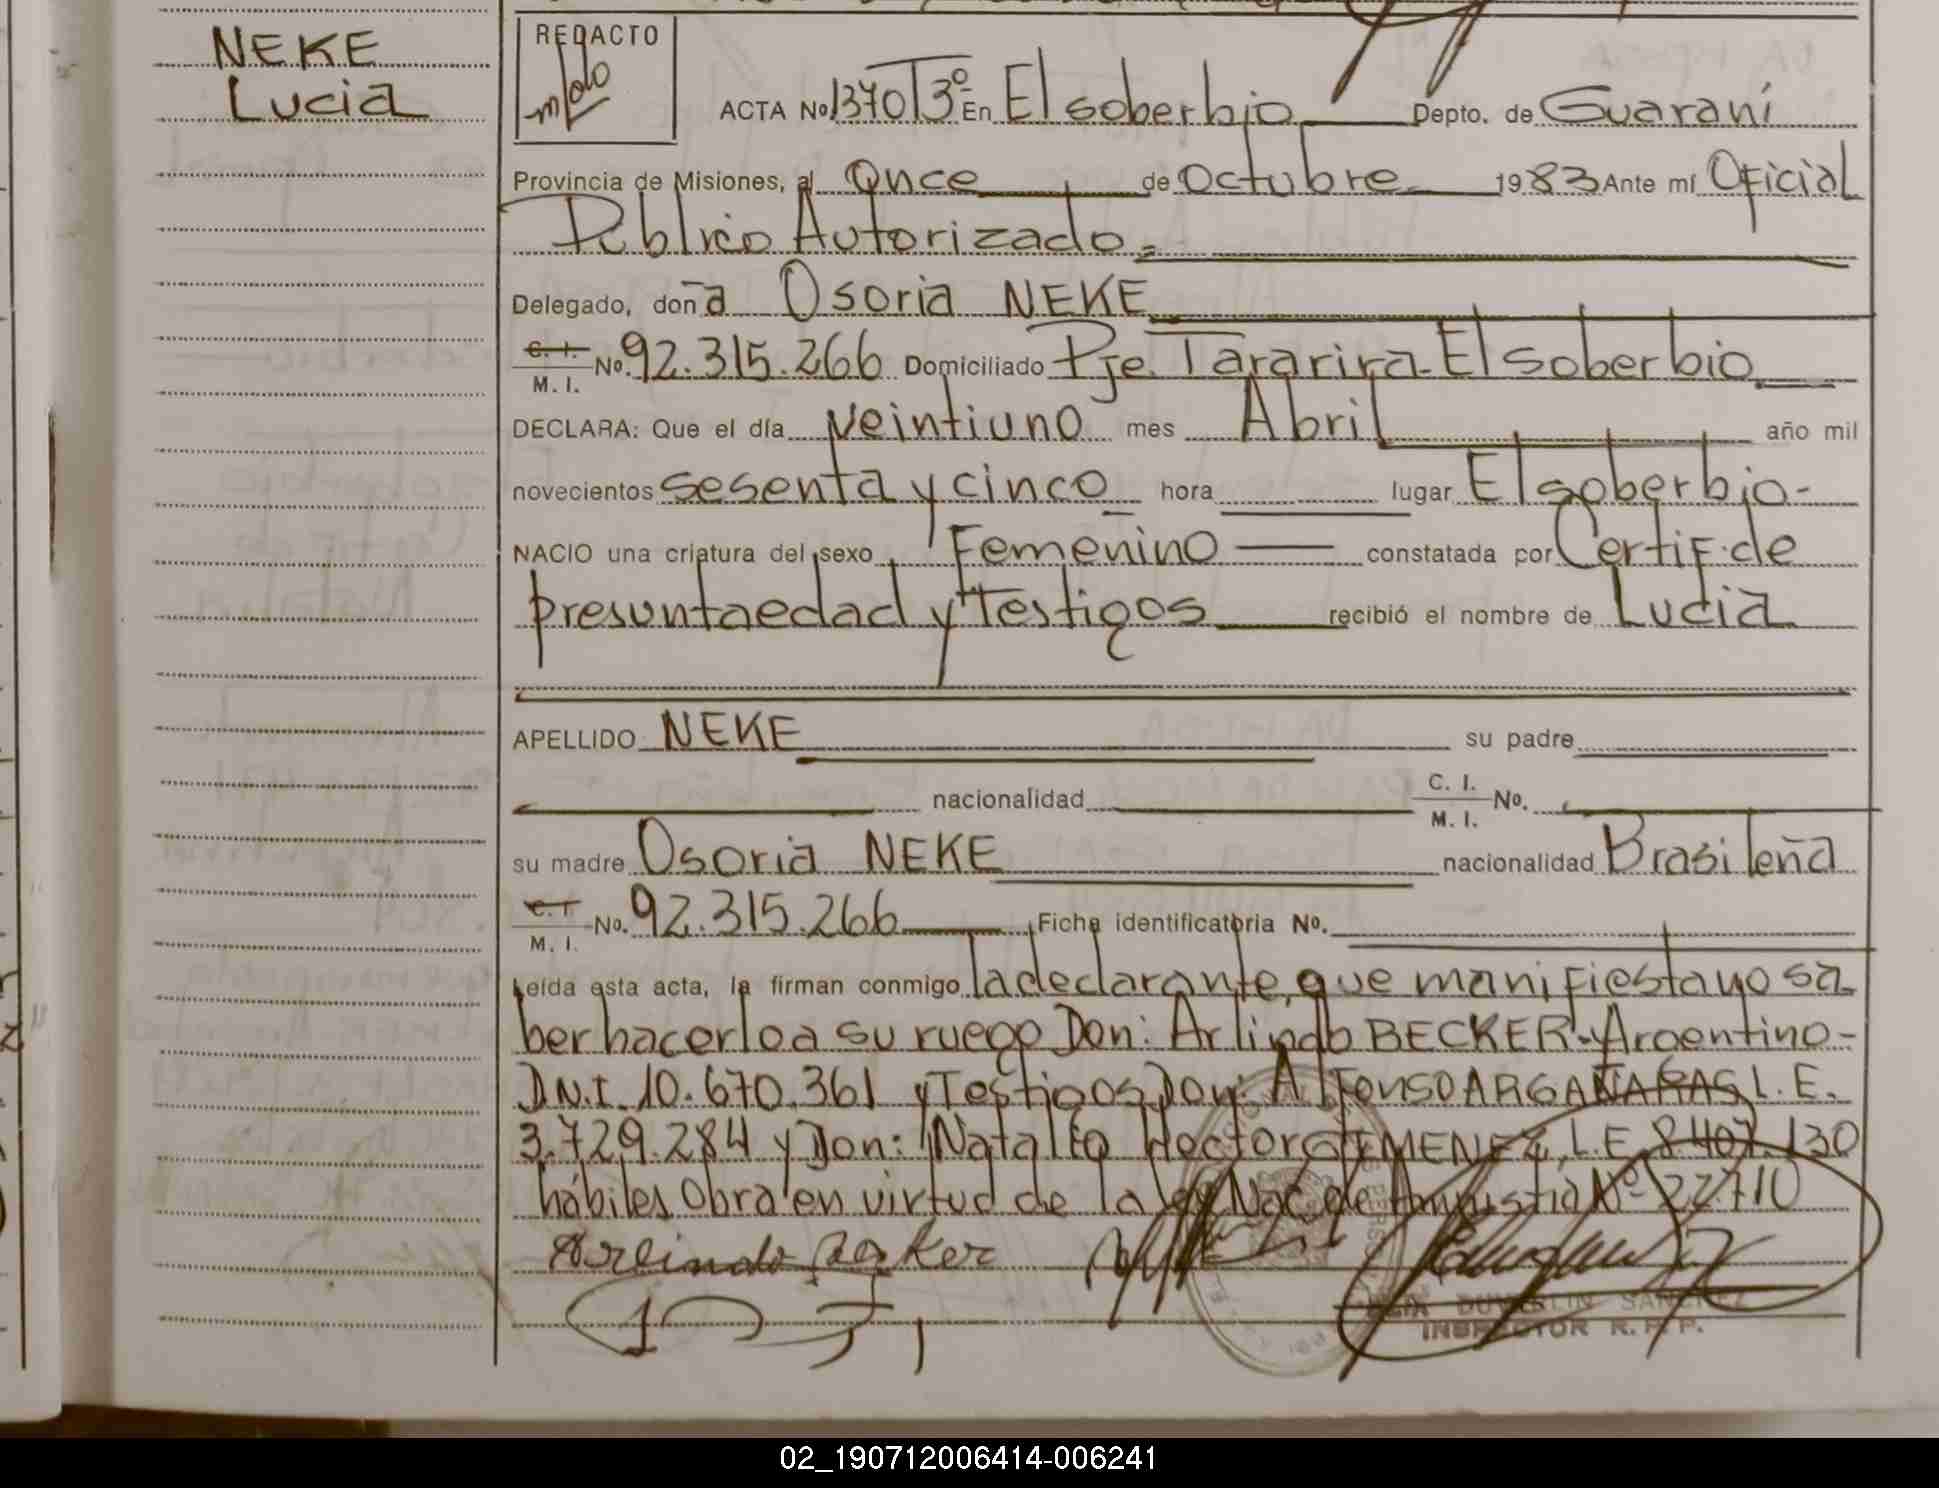 NEKE
Lucia
REDACTO
ACTA Nº 1370 T3º En El soberbio Depto. de Guaraní
Provincia de Misiones, al Once de Octubre 1983 Ante mí Oficial
Público Autorizado.=
Delegado, doña Osoria NEKE
C. I. M. I. Nº. 92.315.266 Domiciliado Pje. Tararira-El soberbio
DECLARA: Que el día veintiuno mes Abril año mil
novecientos sesenta y cinco hora lugar El soberbio-
NACIO una criatura del sexo Femenino constatada por Certif. de
presunta edad y Testigos recibió el nombre de Lucia
APELLIDO NEKE su padre
nacionalidad C. I. M. I. Nº.
su madre Osoria NEKE nacionalidad Brasileña
C. I. M. I. Nº. 92.315.266 Ficha identificatoria Nº.
Leída esta acta, la firman conmigo la declarante, que manifiesta no sa-
ber hacerlo a su ruego Don: Arlindo BECKER-Argentino-
D.N.I. 10.670.361 y Testigos Don: Alfonso ARGAÑARAS L.E.
3.729.284 y Don: Natalio Hector GIMENEZ, L.E. 8.407.130
hábiles Obra en virtud de la ley Nac de Amnistia Nº 22.710
Arlindo Becker
DUVERLIN SANCHEZ
INSPECTOR R. P. P.
02_190712006414-006241